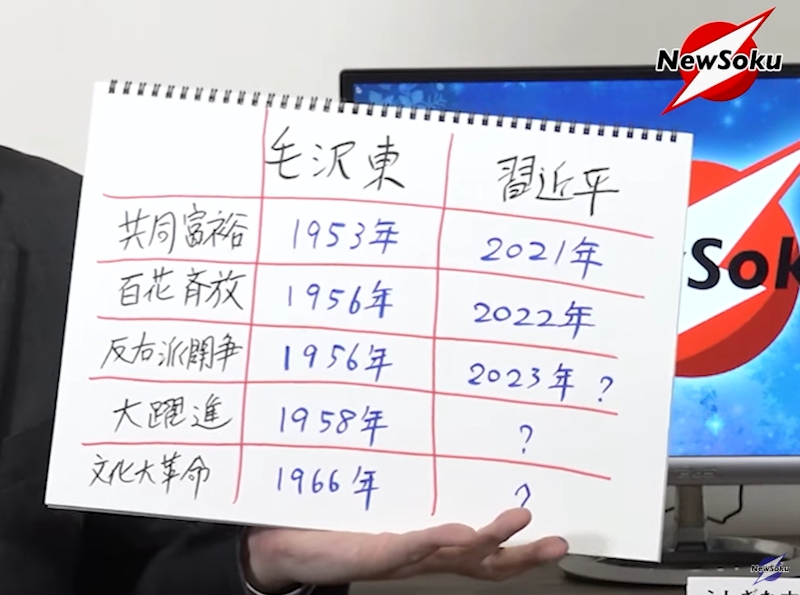 NewSoku
毛沢東 習近平
共同富裕 1953年 2021年
百花斉放 1956年 2022年
反右派闘争 1956年 2023年?
大躍進 1958年 ?
文化大革命 1966年 ?
Sok
NewSoku